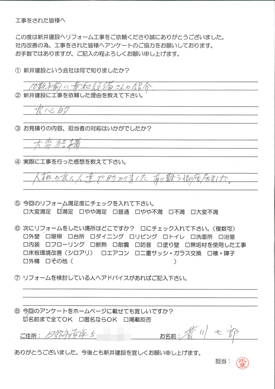 工事をされた皆様へ
この度は新井建設へリフォーム工事をご依頼くださり誠にありがとうございました。
社内改善の為、工事をされた皆様へアンケートのご協力をお願いしております。
お手数ではありますが、ご記入の程よろしくお願い申し上げます。
① 新井建設という会社は何で知りましたか？
② 新井建設に工事を依頼した理由を教えて下さい。
良心的
③ お見積りの内容、担当者の対応はいかがでしたか？
大変結構
④ 実際に工事を行った感想を教えて下さい。
⑤ 今回のリフォーム満足度にチェックを入れて下さい。
□大変満足 ☑満足 □やや満足 □普通 □やや不満 □不満 □大変不満
⑥ 次にリフォームをしたい場所はどこですか？ □にチェック入れて下さい。（複数可）
□外壁 □屋根 □台所 □ダイニング □リビング □トイレ □洗面所 □浴室
□内装 □フローリング □断熱 □耐震 □防音 □塗り壁 □無垢材を使用した工事
□床板環境改善（シロアリ） □エアコン □二重サッシ・ガラス交換 □襖・障子
□外構 □その他（ ）
⑦ リフォームを検討している人へアドバイスがあればご記入下さい。
⑧ 今回のアンケートをホームページに載せても宜しいですか？
☑名前まで全てOK □匿名ならOK □掲載拒否
ご住所：
お名前：荒川七郎
ありがとうございました。今後とも新井建設を宜しくお願い申し上げます。
担当：